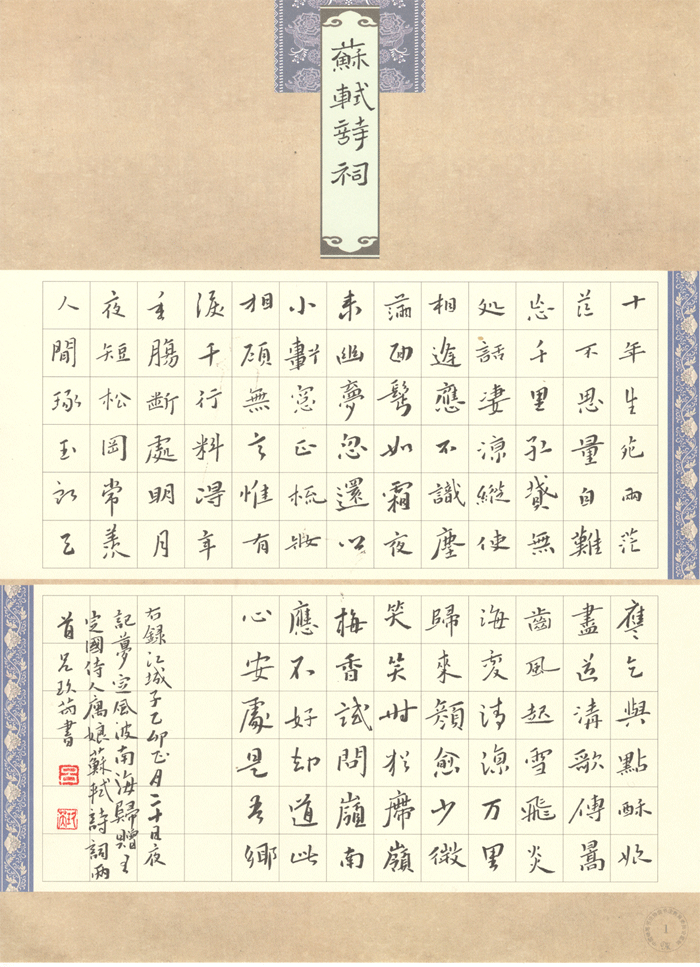 蘇軾詩祠
十年生死兩茫
茫不思量自難
忘千里孤墳無
処話淒涼縱使
相逢應不識塵
滿面鬢如霜夜
来幽夢忽還鄉
小軒窓正梳妝
相顧無言惟有
淚千行料得年
年腸斷處明月
夜短松岡常羨
人間琢玉郎天
應乞與點酥娘
盡道清歌傳皓
齒風起雪飛炎
海變清涼万里
歸來顏愈少微
笑笑時猶帶嶺
梅香試問嶺南
應不好却道此
心安處是吾鄉
右録江城子乙卯正月二十日夜
記夢定風波南海歸贈王
定國侍人寓娘蘇軾詩詞兩
首呂玖芮書